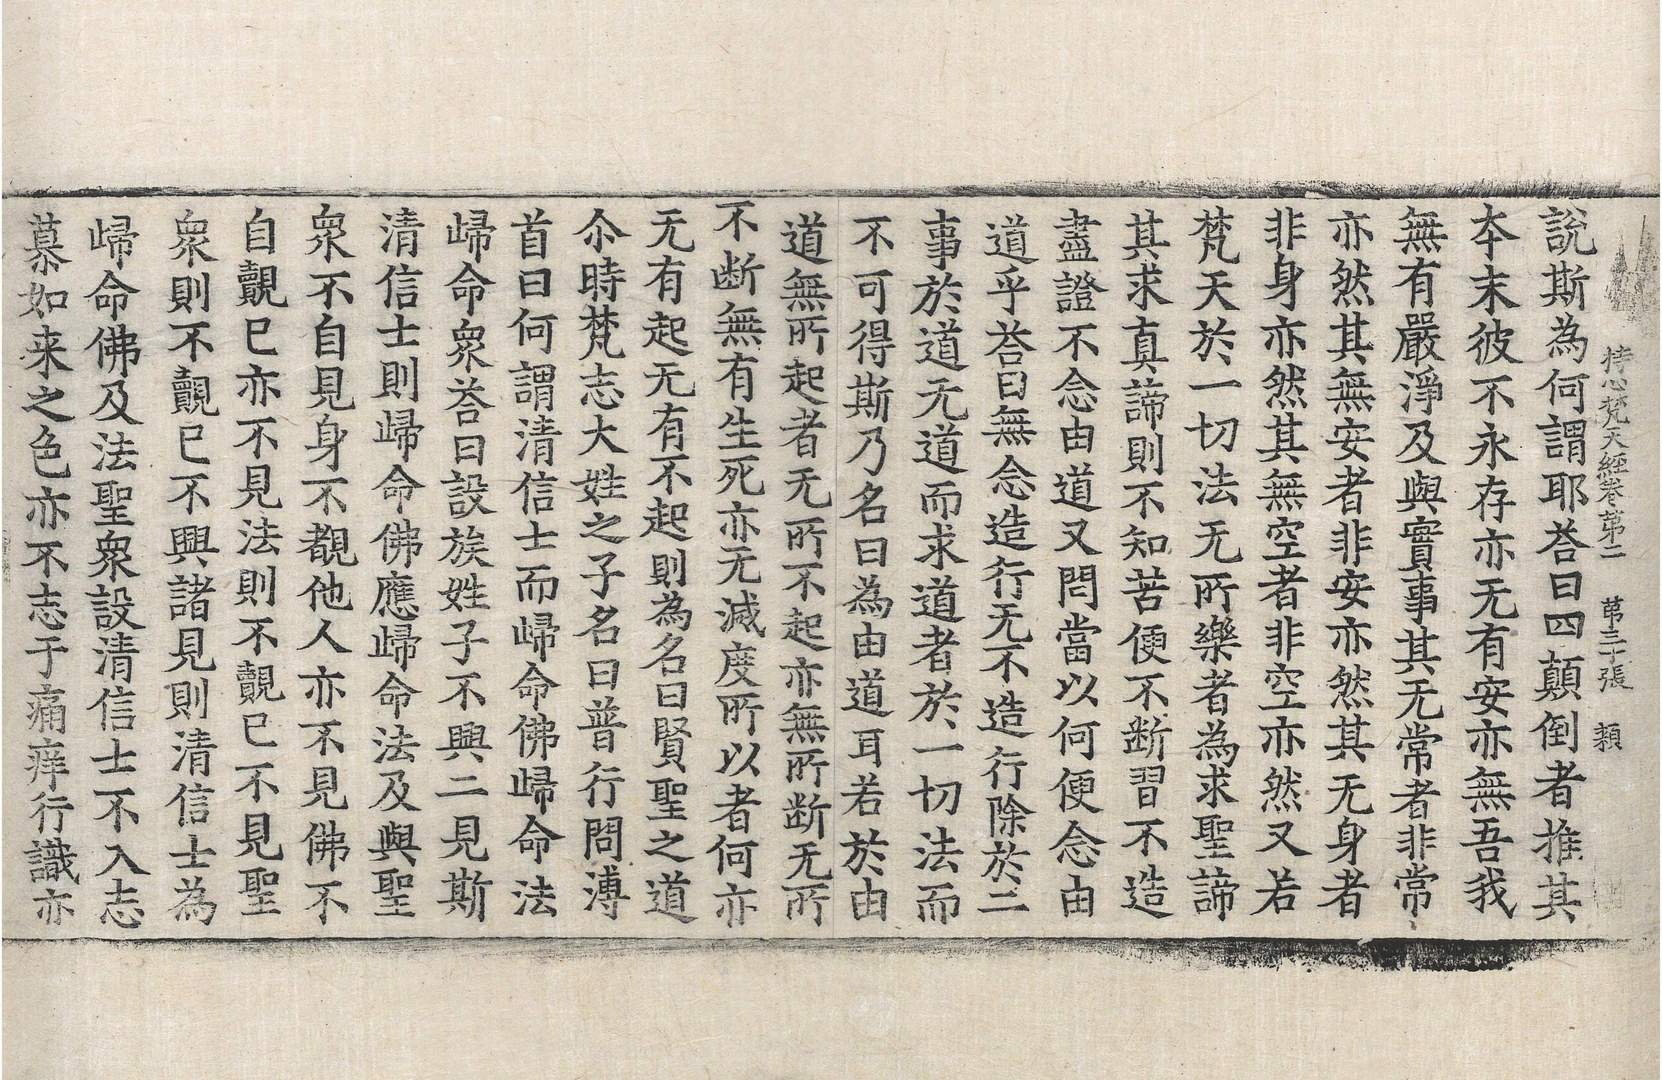 持心梵天經卷第二　第三十張　類
說斯為何謂耶荅曰四顛倒者推其
夲末彼不永存亦无有安亦無吾我
無有嚴淨及與實事其无常者非常
亦然其無安者非安亦然其无身者
非身亦然其無空者非空亦然又若
梵天於一切法无所樂者為求聖諦
其求真諦則不知苦便不断習不造
盡證不念由道又問當以何便念由
道乎荅曰無念造行无不造行除於二
事於道无道而求道者於一切法而
不可得斯乃名曰為由道耳若於由
道無所起者无所不起亦無所断无所
不断無有生死亦无滅度所以者何亦
无有起无有不起則為名曰賢聖之道
尒時梵志大姓之子名曰普行問溥
首曰何謂清信士而歸命佛歸命法
歸命衆荅曰設族姓子不興二見斯
清信士則歸命佛應歸命法及與聖
衆不自見身不覩他人亦不見佛不
自覿已亦不見法則不覿已不見聖
衆則不覿已不興諸見則清信士為
歸命佛及法聖衆設清信士不入志
慕如来之色亦不志于痛痒行識亦